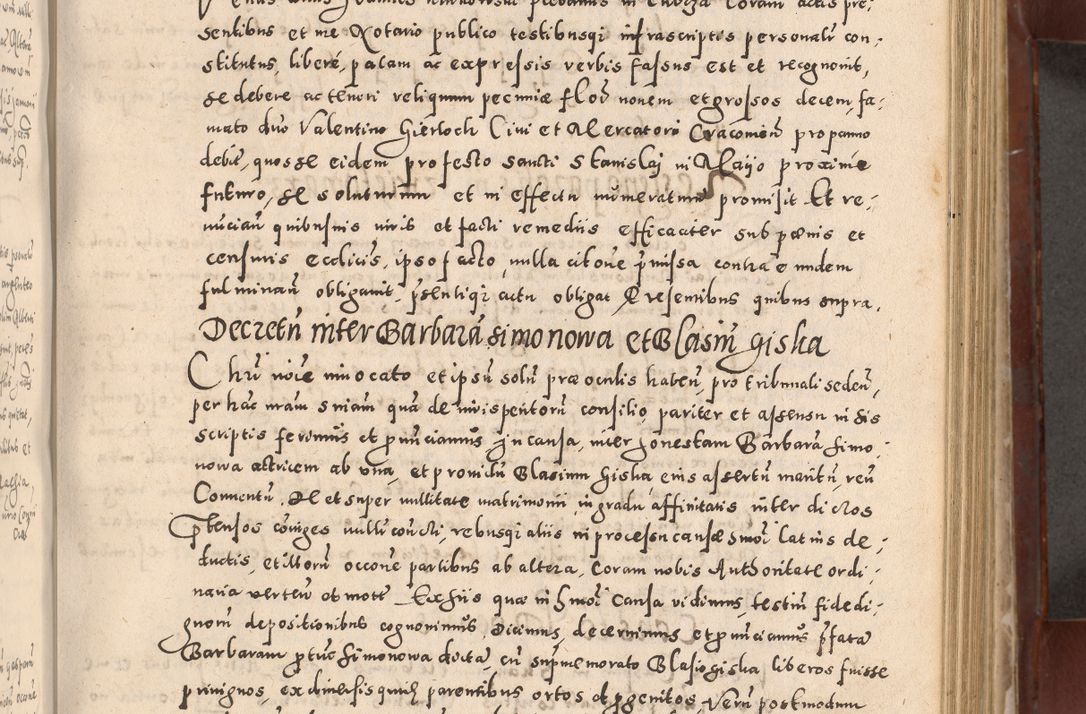 sentibus et me Notario publico testibusqi infrascriptis personalr con,
stitutus, liberé, palam ac expressis verbis fassus est et recognovit,
se debere ac teneri reliquum pecuniæ flor nonem et grossos decem, fa,
mato duo Valentino Gierloch Civi et Mercatori Cracovien pro panno
debit, quos se eidem pro festo sancti Stanislaj in Maijo proxime
futuro, se soluturum et in effectu numeraturum promisit Et re,
nuncian quibusvis iuris et facti remediis efficaciter sub pœnis et
censuris ecclicis, ipso facto, nulla citoñe pmissa contra eundem
fulminañ obligavit, psentiqz actu obligat Presentibus quibus supra,
Decretu inter Barbara Simonowa et Blasiu Giska
Chri noie invocato et ipsu solu præ oculis habeñ, pro tribunali sedeñ,
per hac nram sniam qua de iurisperitoru consilio pariter et assensu in his
scriptis ferimus et pnunciamus in causa, inter honestam Barbara Simo,
nowa actricem ab una, et providu Blasium Giska eius assertu maritu, reu
Conventu, De et super nullitate matrimonii, in gradu affinitatis inter dictos
ptensos coniuges nulli concti, rebusqi aliis in processu causæ hmoi latius de,
ductis, et illoru occoñe partibus ab altera, Coram nobis Authoritate ordi,
naria verteñ et mott Ex hiis quæ in hmoi causa vidimus, testiu fidedi,
gnoru depositionibus cognovimus, Dicimus, decernimus et pnunciamus pfata
Barbaram ptuc Simonowa dicta, cu supmemorato Blasio giska liberos fuisse
privignos, ex diversis quidz parentibus ortos et pgenitos, Veru postmodum